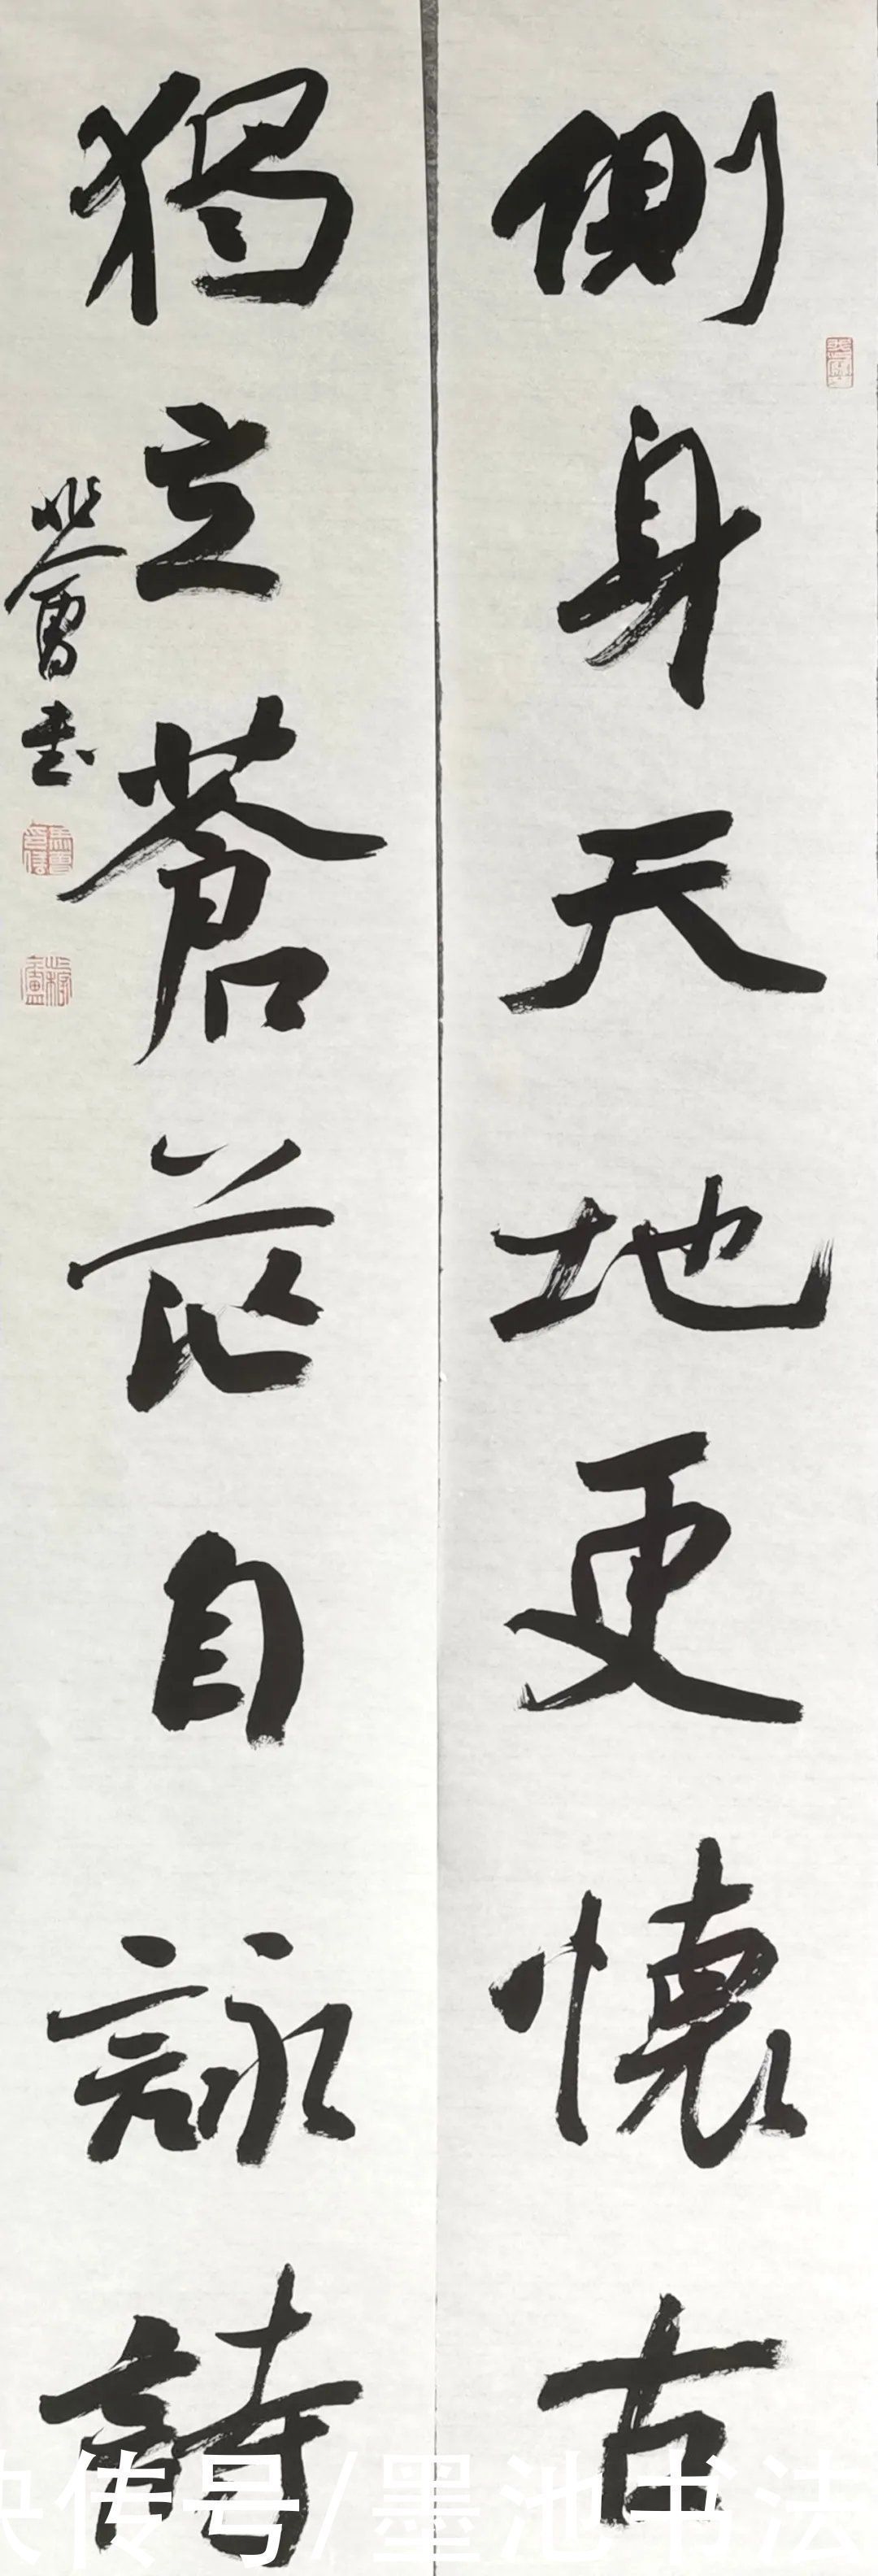 側身天地更懷古
獨立蒼茫自詠詩
曹書
快传号/墨池书法